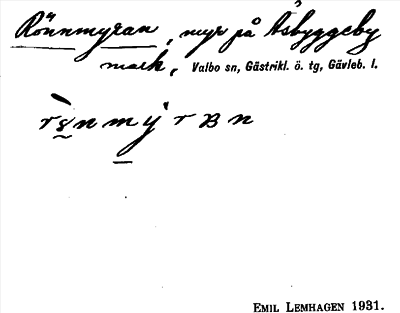 Rönnmyran, myr på Åsbyggeby
mark, Valbo sn, Gästrikl. ö. tg, Gävleb. l.
EMIL LEMHAGEN 1931.